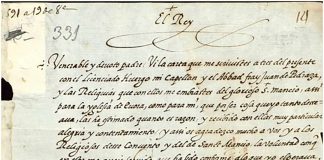 El Rey
331
Venerable y devoto padre. Vi la carta que me scrivistes a tres del presente
con el licenciado Hurtigo mi Capellan y el Abbad fray Juan de Pedraza,
y las Reliquias que con ellos me embiastes del glorioso S. mancio, assi
para la yglesia de Evora, como para mi, que por ser cosa que yo tanto desse
ava, las he estimado quanto es razon, y rescibido con ellas muy particular
alegria y contentamiento, y assi os agradezco mucho a vos y a los
Religiosos desse Convento y del de Sancto Mancio, la voluntad con q